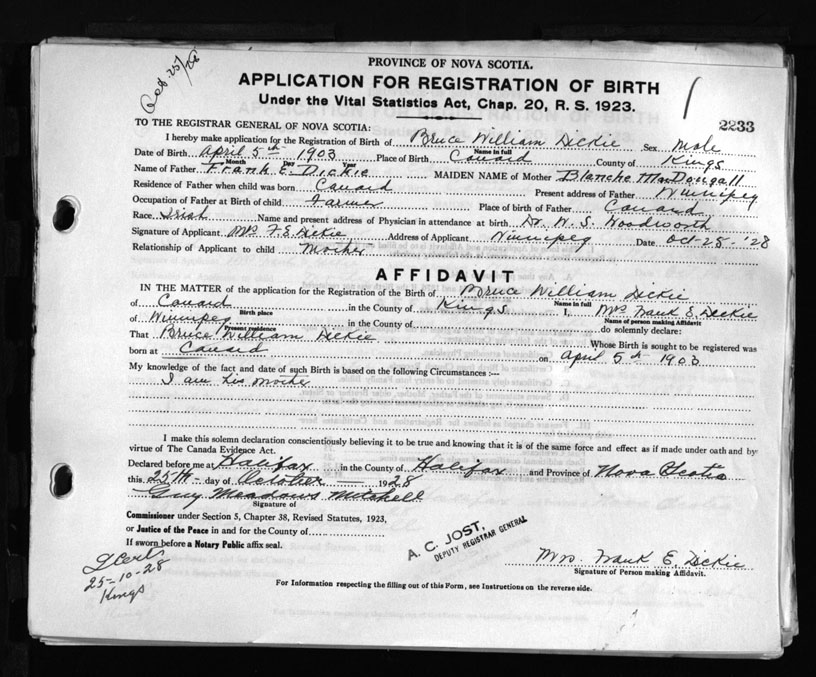 Oct. 25/28
PROVINCE OF NOVA SCOTIA.
APPLICATION FOR REGISTRATION OF BIRTH
Under the Vital Statistics Act, Chap. 20, R. S. 1923.
2233
TO THE REGISTRAR GENERAL OF NOVA SCOTIA:
I hereby make application for the Registration of Birth of Bruce William Dickie Sex Male
Name in full
Date of Birth April 5th 1903 Place of Birth Canard County of Kings
Month Day Year
Name of Father Frank E. Dickie MAIDEN NAME of Mother Blanche MacDougall
Residence of Father when child was born Canard Present address of Father Winnipeg
Occupation of Father at Birth of child Farmer Place of birth of Father Canard
Race Irish Name and present address of Physician in attendance at birth Dr. W. S. Woodworth
Signature of Applicant Mrs F. E. Dickie Address of Applicant Winnipeg Date Oct-25-'28
Relationship of Applicant to child Mother
AFFIDAVIT
IN THE MATTER of the application for the Registration of the Birth of Bruce William Dickie
Name in full
of Canard in the County of Kings I, Mrs Frank E. Dickie
Birth place
Name of person making Affidavit
of Winnipeg in the County of do solemnly declare:
Present residence
That Bruce William Dickie Whose Birth is sought to be registered was
born at Canard on April 5th 1903
My knowledge of the fact and date of such Birth is based on the following Circumstances :—
I am his mother
I make this solemn declaration conscientiously believing it to be true and knowing that it is of the same force and effect as if made under oath and by
virtue of The Canada Evidence Act.
Declared before me at Halifax in the County of Halifax and Province of Nova Scotia
this 25th day of October 1928
Guy Meadows Mitchell
Signature of
Commissioner under Section 5, Chapter 38, Revised Statutes, 1923,
or Justice of the Peace in and for the County of
If sworn before a Notary Public affix seal.
A. C. JOST,
DEPUTY REGISTRAR GENERAL
Mrs. Frank E. Dickie
Signature of Person making Affidavit.
25-10-28
Kings
For Information respecting the filling out of this Form, see Instructions on the reverse side.